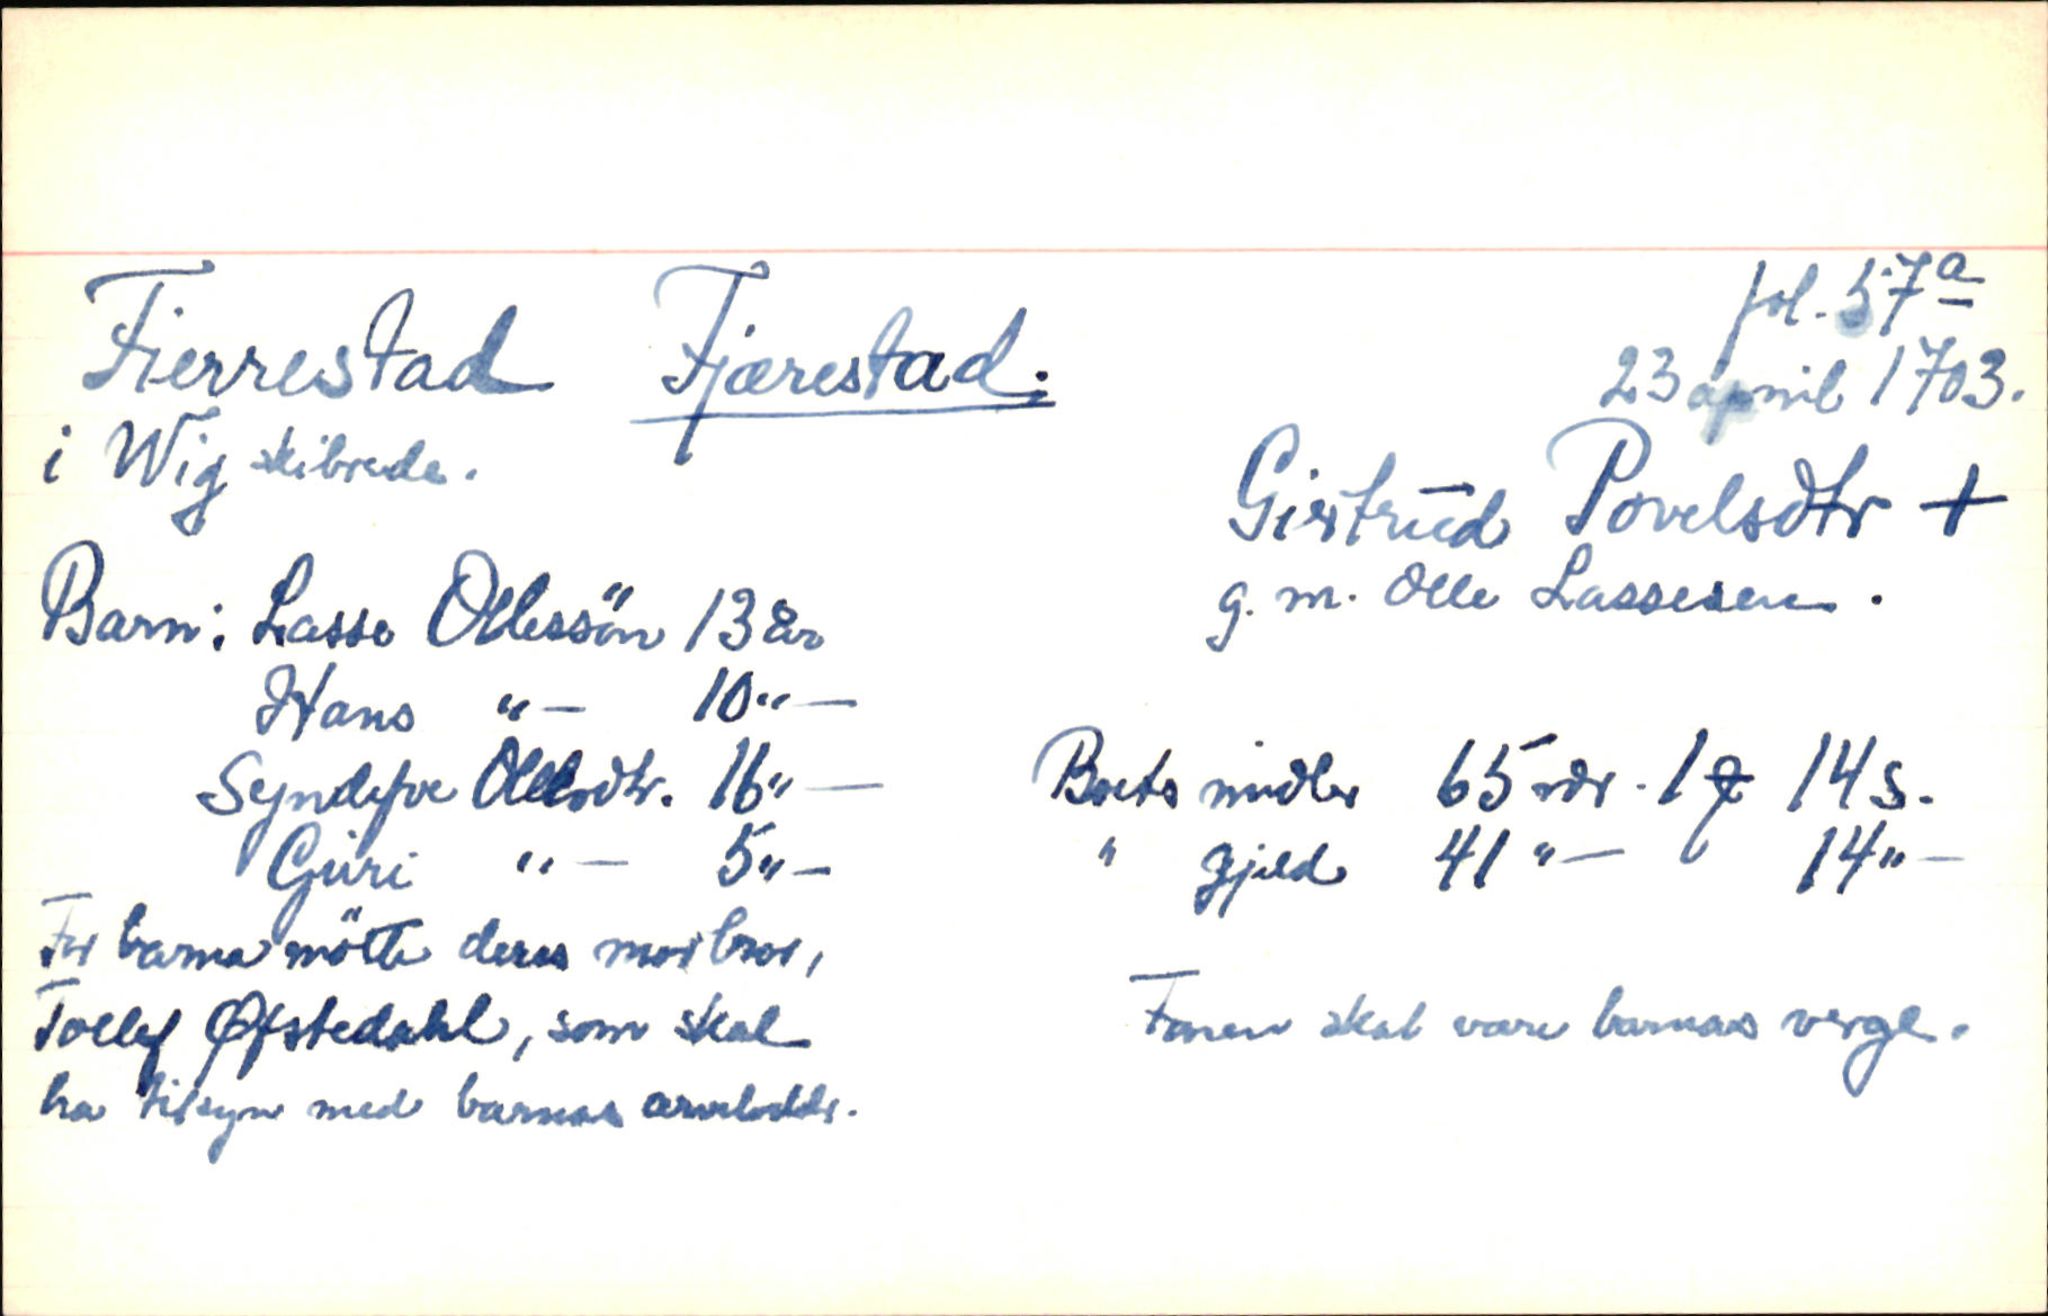 fol. 57a
Fierrestad Fjærestad.
23 april 1703.
i Wig skibrede.
Girtrud Povelsdtr +
g. m. Olle Lassesen.
Barn: Lasse Ollessön 13 år
Hans "— 10"—
Syndefve Ollesdtr. 16"—
Guri "— 5"—
Boets midler 65 rdr. 1 ƒ 14 s.
" gjeld 41 "— 14"—
For barna mötte deres morbror,
Tollef Øfstedahl, som skal
ha tilsyn med barnas arvelodder.
Faren skal være barnas verge.